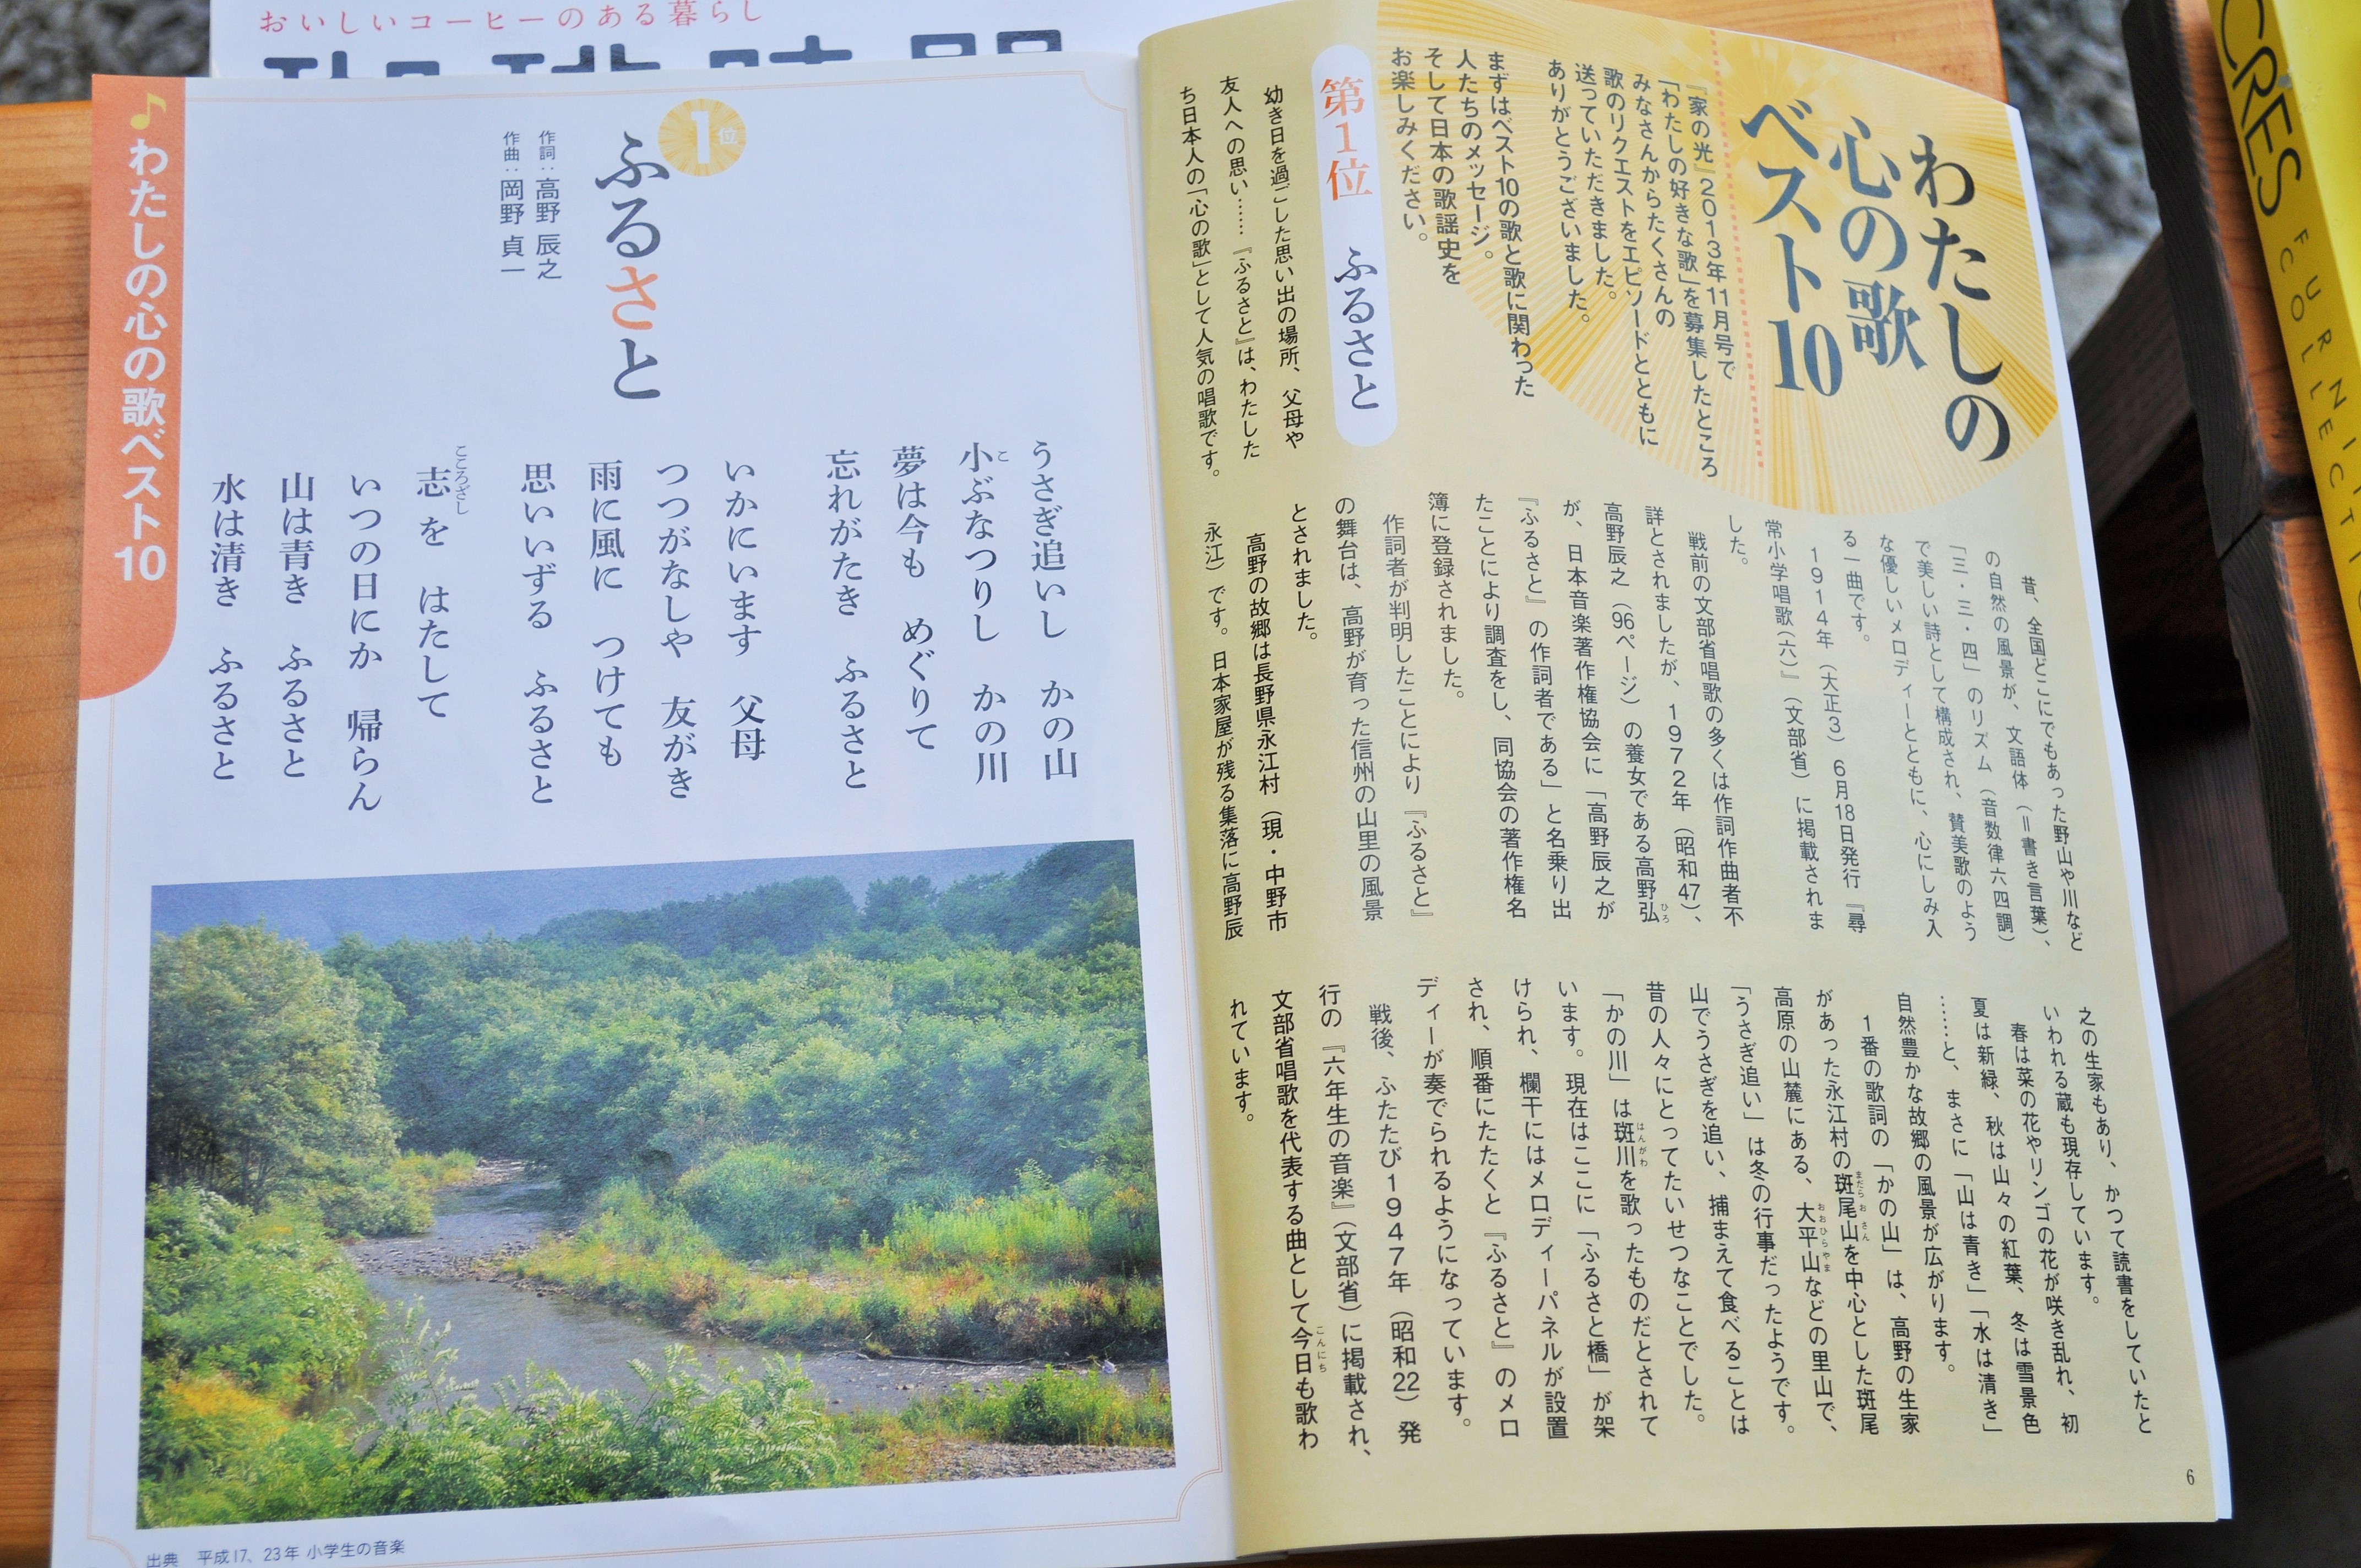 おいしいコーヒーのある暮らし
わたしの
心の歌
ベスト10
『家の光』2013年11月号で
「わたしの好きな歌」を募集したところ
みなさんからたくさんの
歌のリクエストをエピソードとともに
送っていただきました。
ありがとうございました。
まずはベスト10の歌と歌に関わった
人たちのメッセージ。
そして日本の歌謡史を
お楽しみください。
第1位 ふるさと
幼き日を過ごした思い出の場所、父母や
友人への思い……『ふるさと』は、わたした
ち日本人の「心の歌」として人気の唱歌です。
昔、全国どこにでもあった野山や川など
の自然の風景が、文語体（＝書き言葉）、
「三・三・四」のリズム（音数律六四調）
で美しい詩として構成され、賛美歌のよう
な優しいメロディーとともに、心にしみ入
る一曲です。
1914年（大正3）6月18日発行『尋
常小学唱歌（六）』（文部省）に掲載されま
した。
戦前の文部省唱歌の多くは作詞作曲者不
詳とされましたが、1972年（昭和47）、
高野辰之（96ページ）の養女である高野弘
ひろ
が、日本音楽著作権協会に「高野辰之が
『ふるさと』の作詞者である」と名乗り出
たことにより調査をし、同協会の著作権名
簿に登録されました。
作詞者が判明したことにより『ふるさと』
の舞台は、高野が育った信州の山里の風景
とされました。
高野の故郷は長野県永江村（現・中野市
永江）です。日本家屋が残る集落に高野辰
之の生家もあり、かつて読書をしていたと
いわれる蔵も現存しています。
春は菜の花やリンゴの花が咲き乱れ、初
夏は新緑、秋は山々の紅葉、冬は雪景色
……と、まさに「山は青き」「水は清き」
自然豊かな故郷の風景が広がります。
1番の歌詞の「かの山」は、高野の生家
があった永江村の斑尾山を中心とした斑尾
まだらおさん
高原の山麓にある、大平山などの里山で、
おおひらやま
「うさぎ追い」は冬の行事だったようです。
山でうさぎを追い、捕まえて食べることは
昔の人々にとってたいせつなことでした。
「かの川」は斑川を歌ったものだとされて
はんがわ
います。現在はここに「ふるさと橋」が架
けられ、欄干にはメロディーパネルが設置
され、順番にたたくと『ふるさと』のメロ
ディーが奏でられるようになっています。
戦後、ふたたび1947年（昭和22）発
行の『六年生の音楽』（文部省）に掲載され、
文部省唱歌を代表する曲として今日も歌わ
こんにち
れています。
6
1位
ふるさと
作詞：高野 辰之
作曲：岡野 貞一
うさぎ追いし かの山
小ぶなつりし かの川
こ
夢は今も めぐりて
忘れがたき ふるさと
いかにいます 父母
つつがなしや 友がき
雨に風に つけても
思いいずる ふるさと
志を はたして
こころざし
いつの日にか 帰らん
山は青き ふるさと
水は清き ふるさと
♪わたしの心の歌ベスト10
出典 平成17、23年 小学生の音楽
CRES